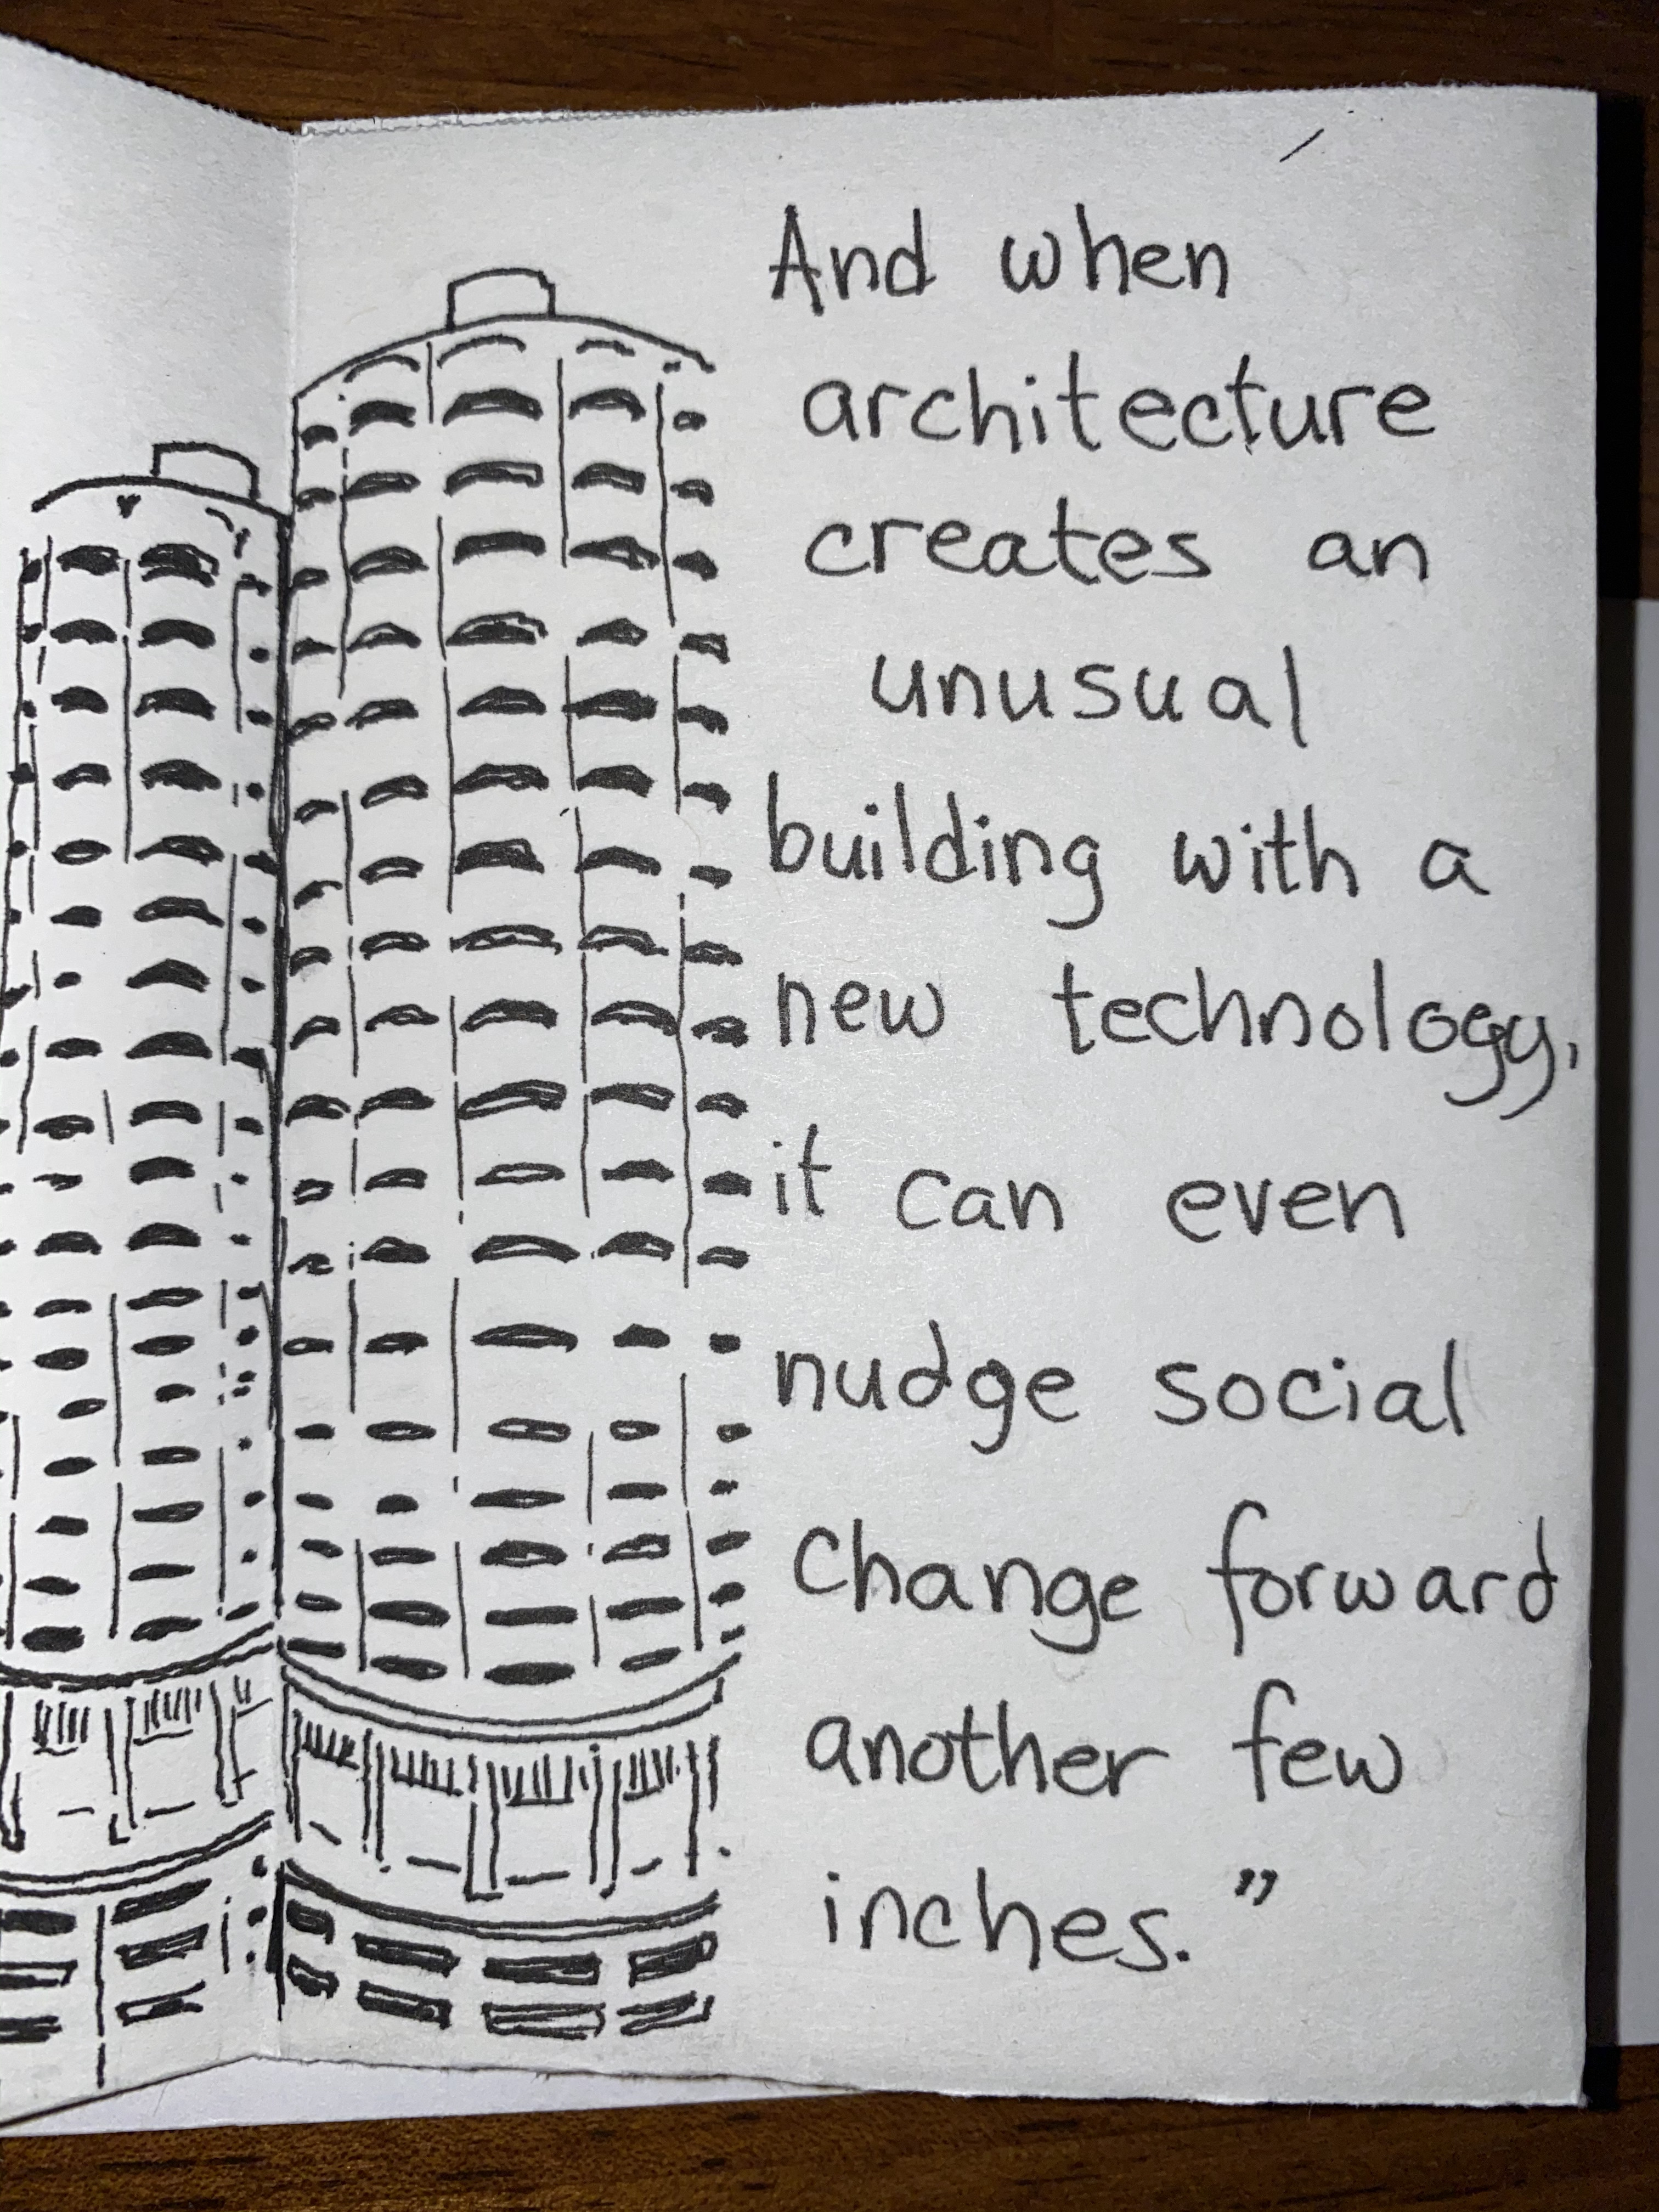 And when
architecture
creates an
unusual
building with a
new technology,
it can even
nudge social
change forward
another few
inches."